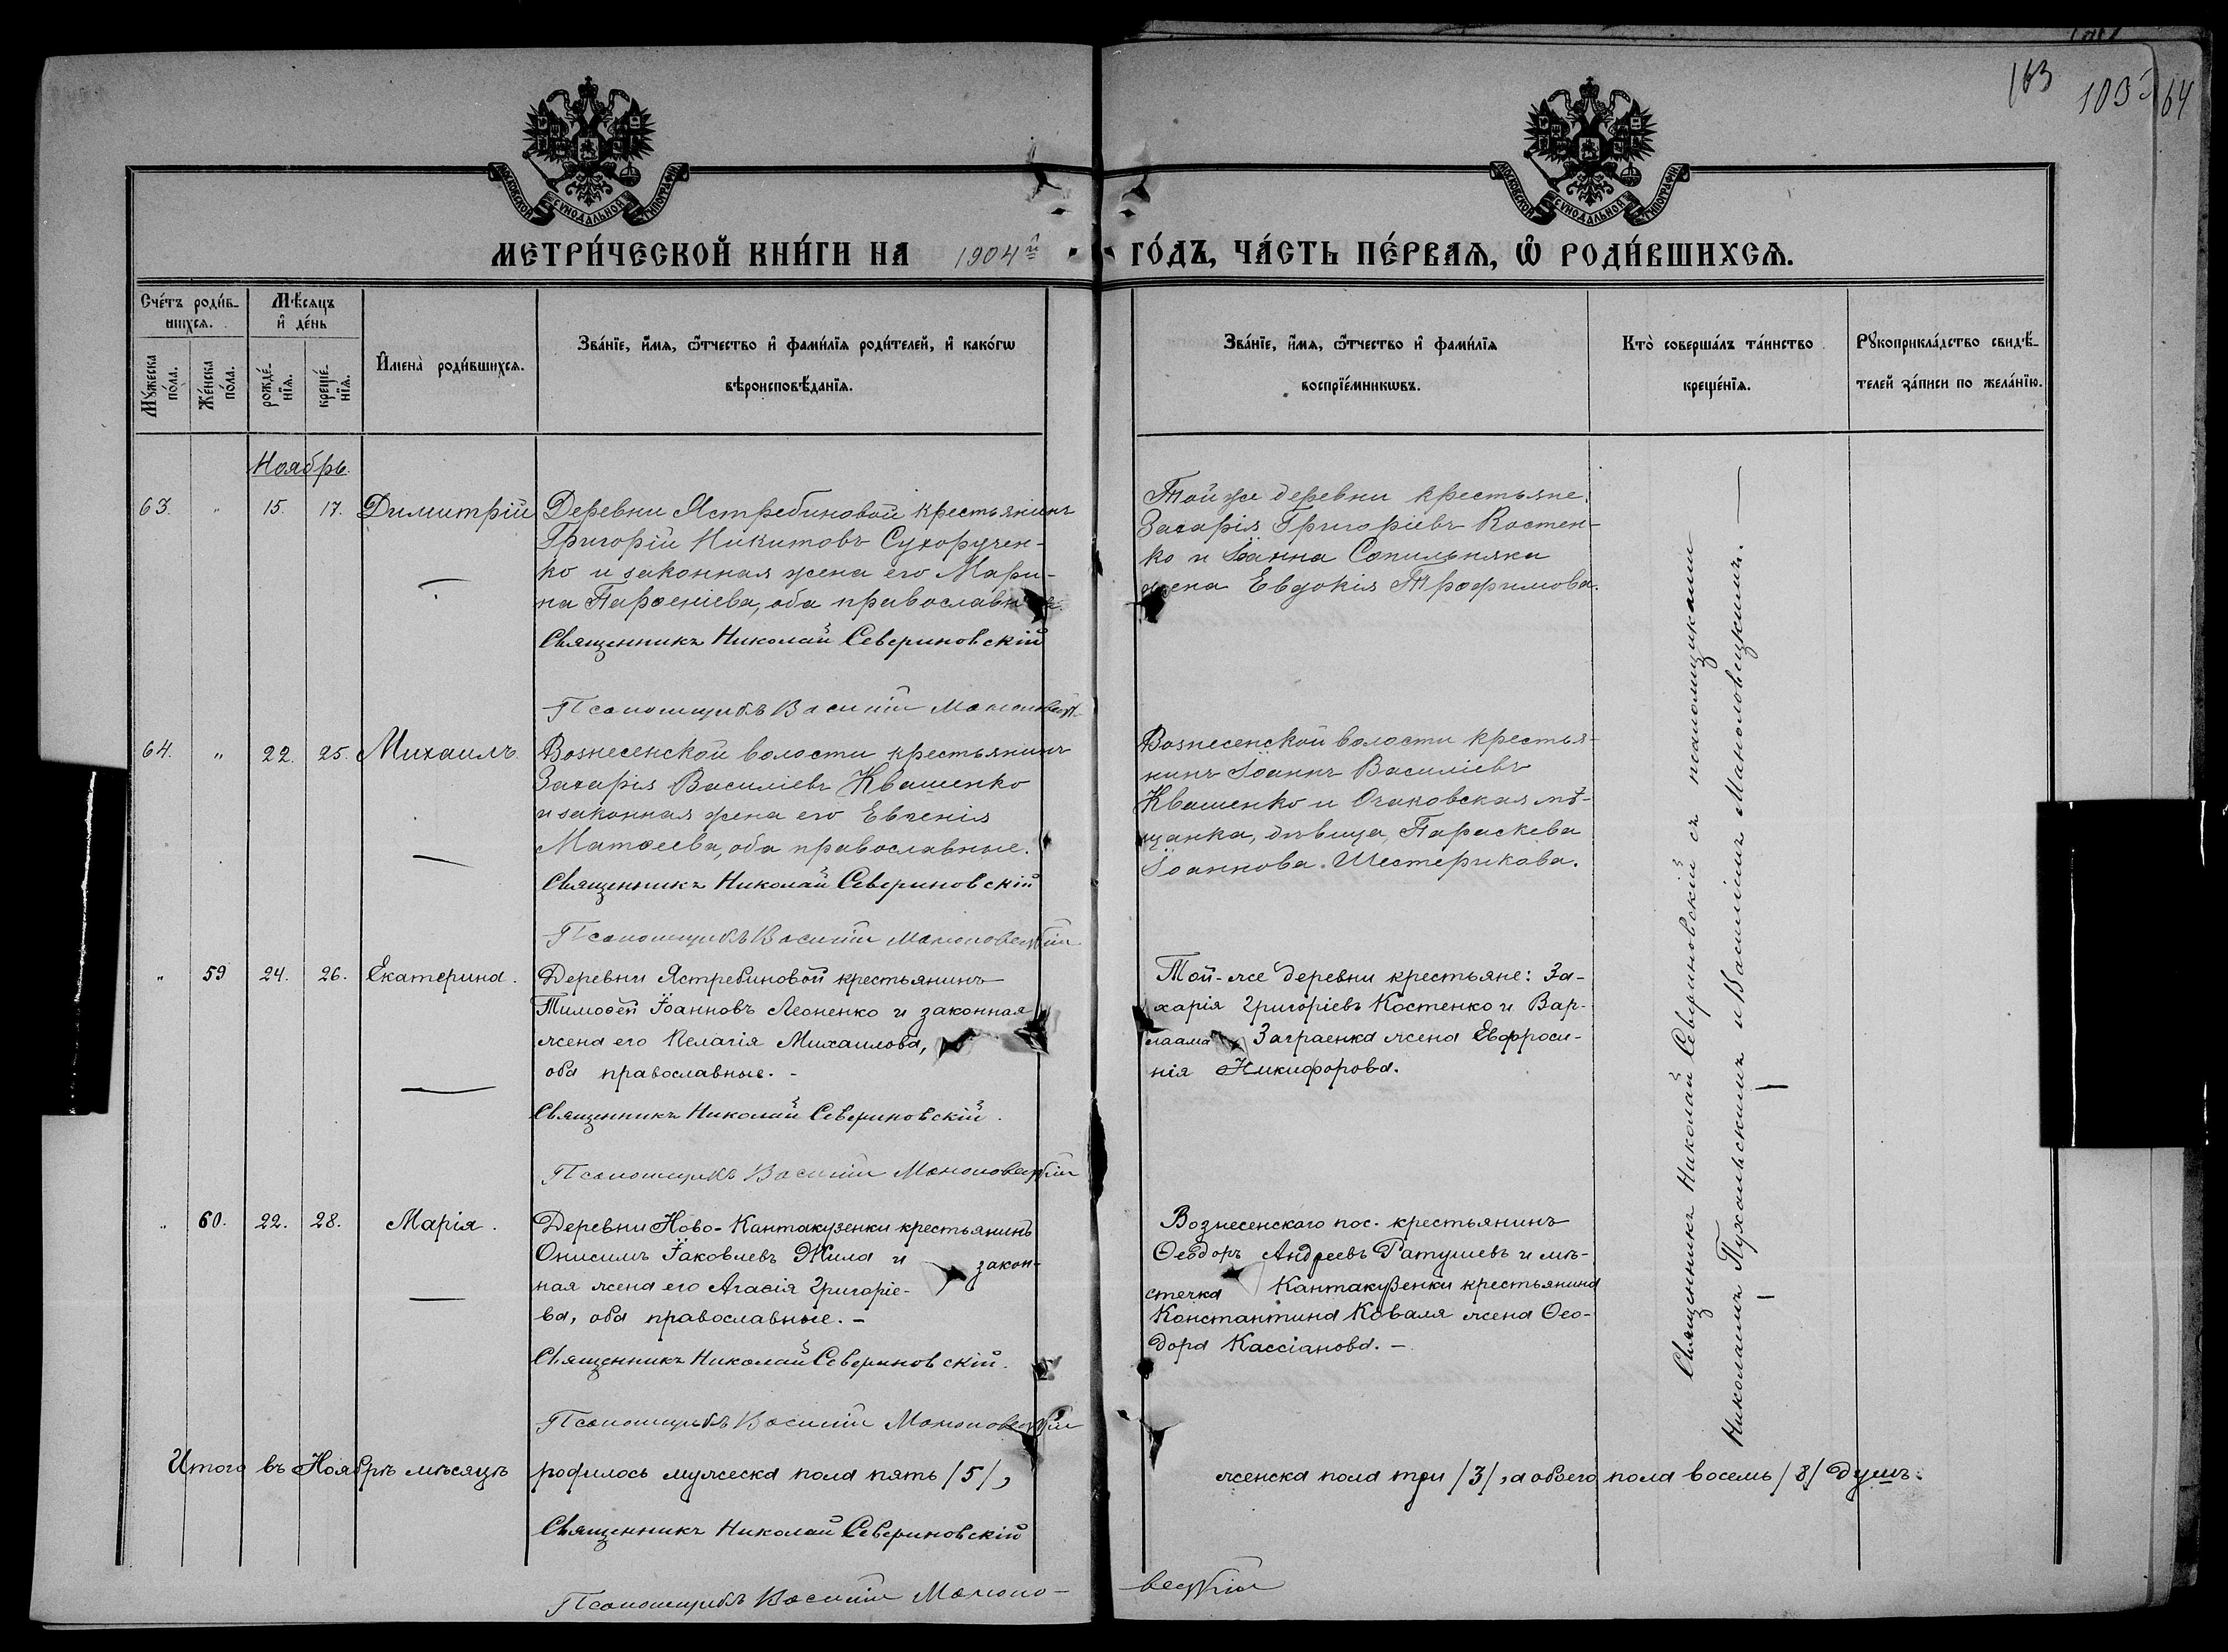 163
103
64
МОСКОВСКОЙ СѴНОДАЛЬНОЙ ТИПОГРАФІИ
МОСКОВСКОЙ СѴНОДАЛЬНОЙ ТИПОГРАФІИ
МЕТРИ́ЧЕСКОЙ КНИ́ГИ НА 1904й ГО́ДЪ, ЧА́СТЬ ПЕ́РВАѦ, Ѡ҆ РОДИ́ВШИХСѦ.
Сче́тъ роди́в-
шихсѧ.
Мѣ́сѧцъ
и҆ де́нь
Мꙋ́жеска
по́ла.
Же́нска
по́ла.
рожде́-
нїѧ.
креще́-
нїѧ.
И҆мена̀ роди́вшихсѧ.
Зва́нїе, и҆́мѧ, ѻ҆́тчество и҆ фами́лїѧ роди́телей, и҆ како́гѡ
вѣроисповѣ́данїѧ.
Зва́нїе, и҆́мѧ, ѻ҆́тчество и҆ фами́лїѧ
воспрїе́мникѡвъ.
Кто̀ соверша́лъ та́инство
креще́нїѧ.
Рꙋкоприкла́дство свидѣ́-
телей за́писи по жела́нїю.
Ноябрь.
63. " 15. 17. Димитрій
Деревни Ястребиновой крестьянинъ
Григорій Никитовъ Сухоручен-
ко и законная жена его Мари-
на Парѳеніева, оба православные.
Священникъ Николай Севериновскій
Псаломщикъ Василій Маноловецкій
Той же деревни крестьяне:
Захарія Григоріевъ Костен-
ко и Іоанна Сопильняка
жена Евдокія Трофимова.
64. " 22. 25. Михаилъ.
Вознесенской волости крестьянинъ
Захарія Василіевъ Квашенко
и законная жена его Евгенія
Матѳеева, оба православные.
Священникъ Николай Севериновскій
Псаломщикъ Василій Маноловецкій
Вознесенской волости крестья-
нинъ Іоаннъ Василіевъ
Квашенко и Очаковская мѣ-
щанка, дѣвица, Параскева
Іоаннова Шестерикова.
" 59 24. 26. Екатерина.
Деревни Ястребиновой крестьянинъ
Тимоѳей Іоанновъ Леоненко и законная
жена его Пелагія Михаилова,
оба православные. -
Священникъ Николай Севериновскій.
Псаломщикъ Василій Маноловецкій
Той-же деревни крестьяне: За-
харія Григоріевъ Костенко и Вар-
лаама Заграенка жена Евфроси-
нія Никифорова.
" 60. 22. 28. Марія.
Деревни Ново-Кантакузенки крестьянинъ
Онисимъ Іаковлевъ Жила и закон-
ная жена его Агаѳія Григоріе-
ва, оба православные. -
Священникъ Николай Севериновскій.
Псаломщикъ Василій Маноловецкій
Вознесенскаго пос. крестьянинъ
Ѳеодоръ Андреевъ Ратушевъ и мѣ-
стечка Кантакузенки крестьянина
Константина Коваля жена Ѳео-
дора Кассіанова. -
Священникъ Николай Севериновскій съ псаломщиками
Николаемъ Пухальскимъ и Василіемъ Маноловецкимъ.
Итого въ Ноябрѣ мѣсяцѣ родилось мужеска пола пять /5/, женска пола три /3/, а обоего пола восемь /8/ душъ.
Священникъ Николай Севериновскій
Псаломщикъ Василій Маноло-
вецкій